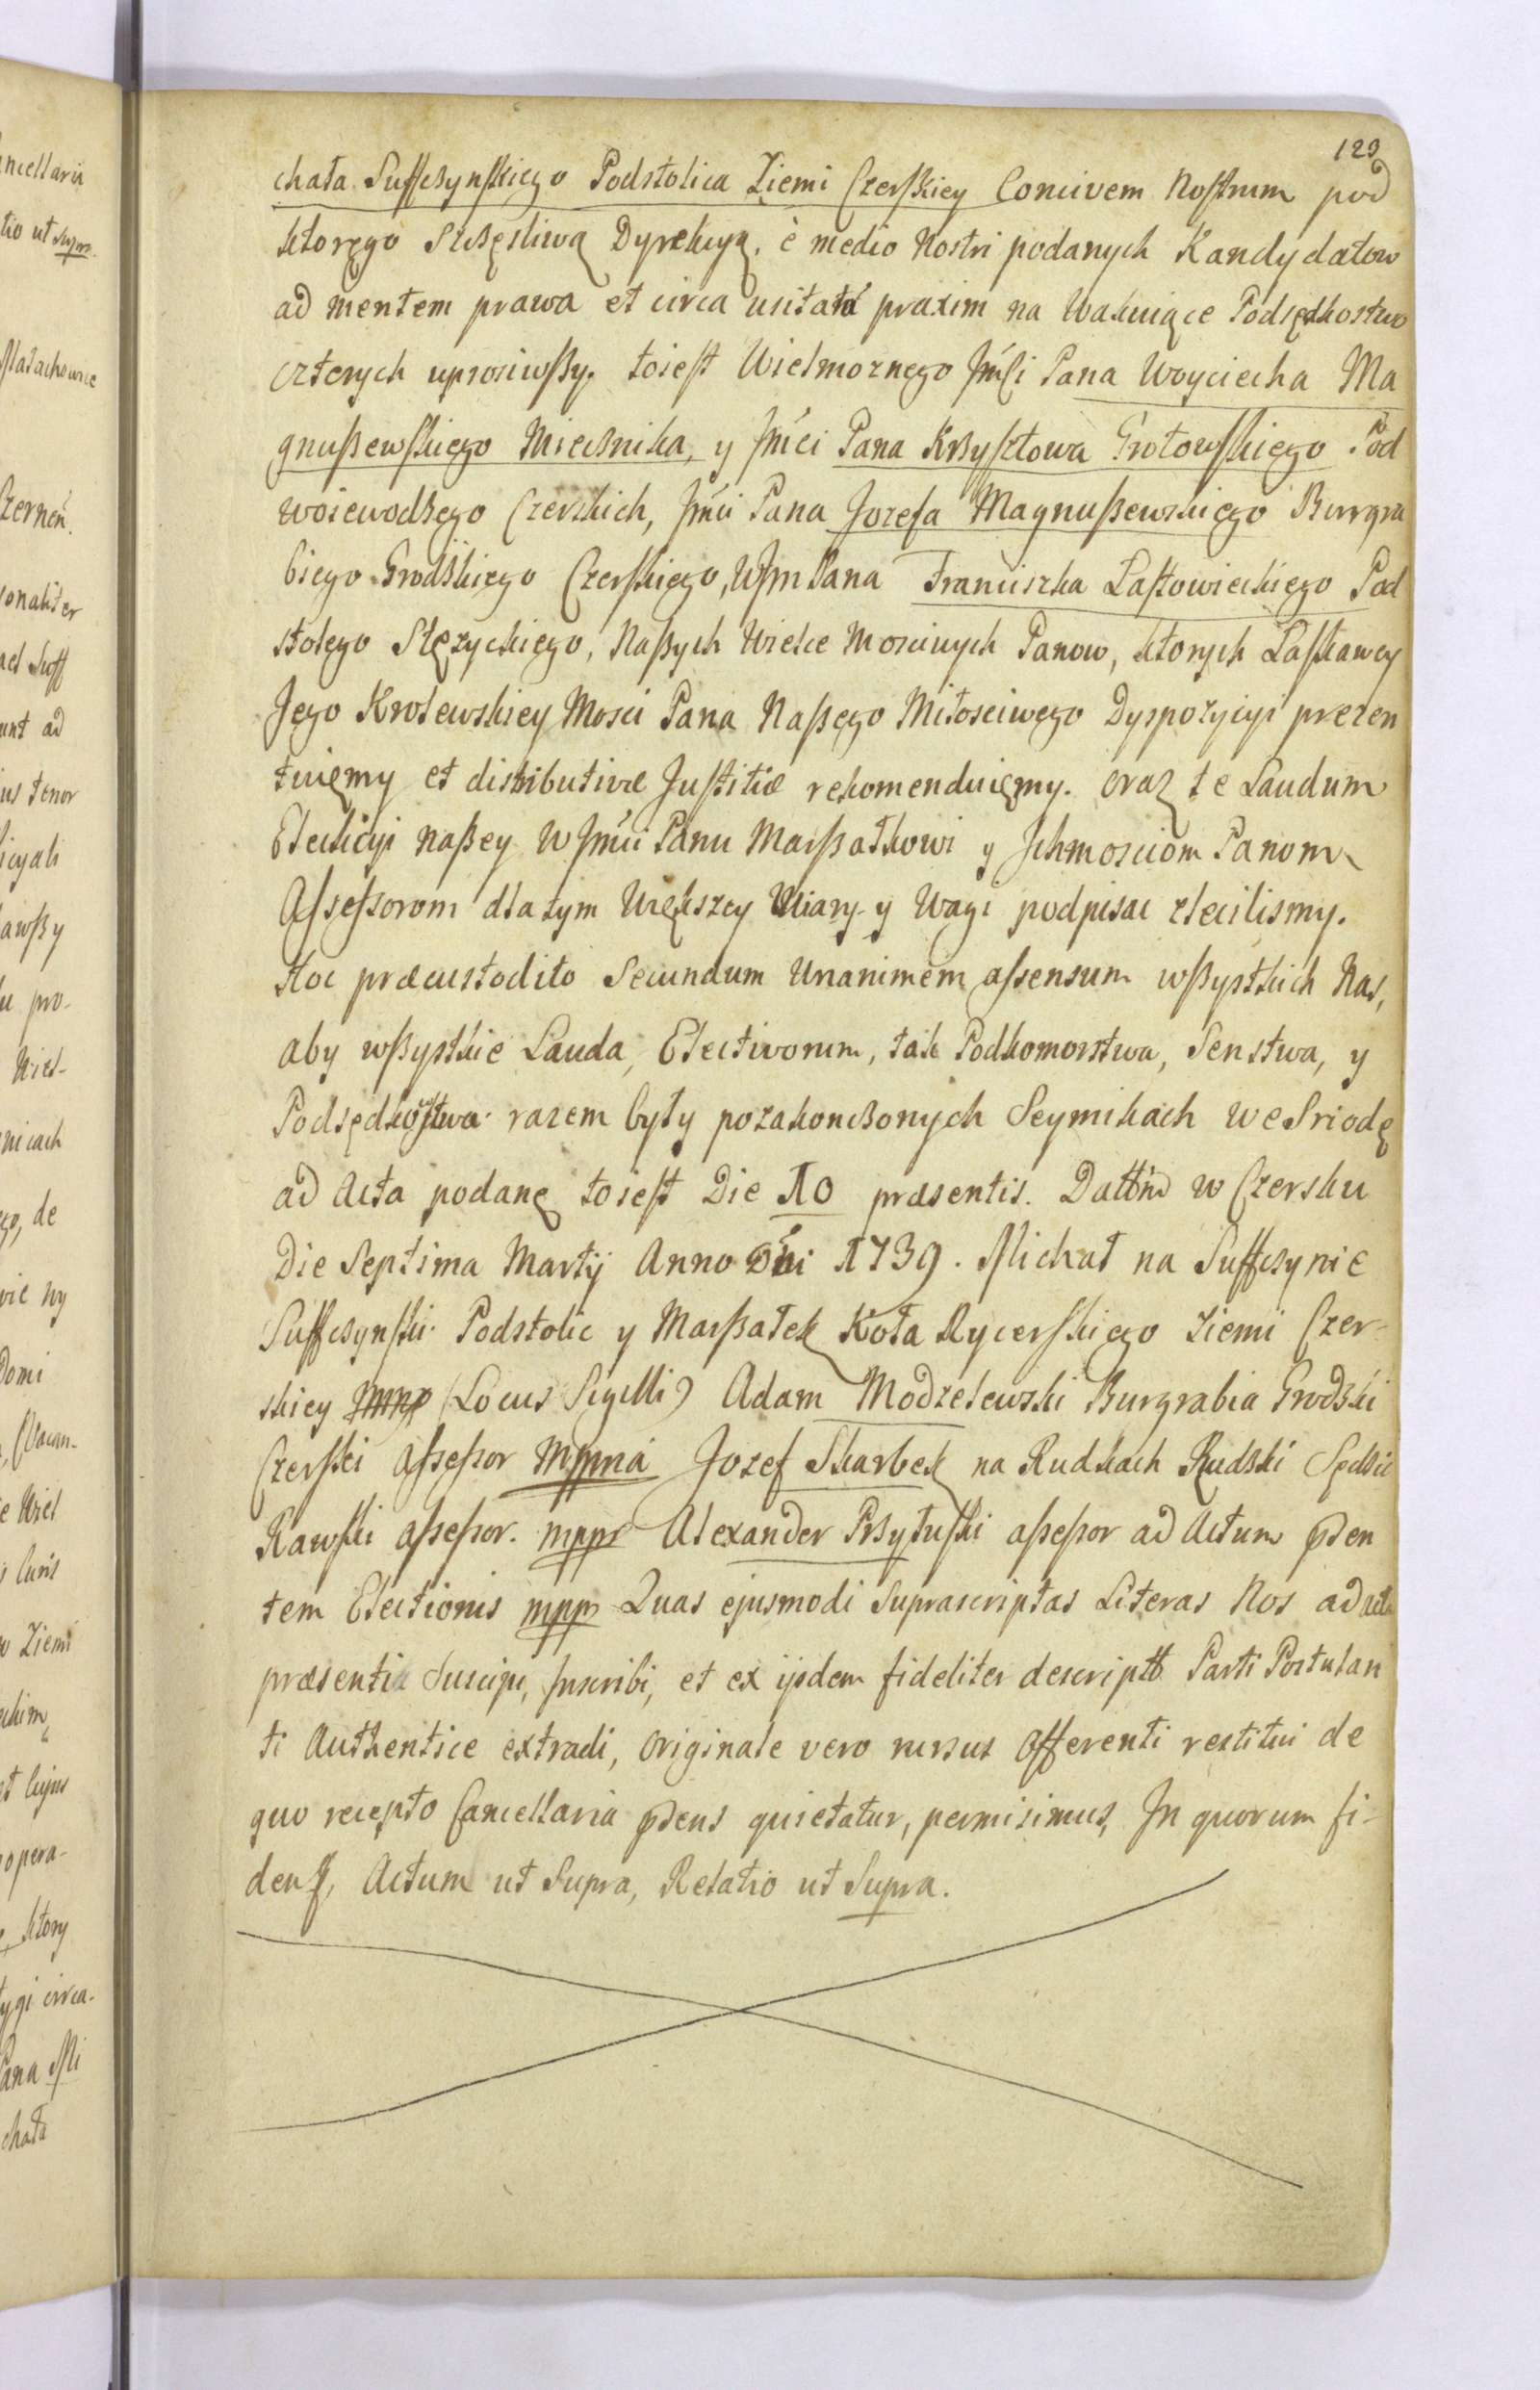 123
chała Suffczynskiego Podstolica Ziemi Czerskiey Concivem Nostrum pod
ktorego Szczęsliwą Dyrekcyą, è medio Nostri podanych Kandydatow
ad mentem prawa et circa usitatã praxim na Wakuiące Podsędkostwo
czterych uprosiwszy. toiest Wielmoznego Jmści Pana Woyciecha Ma
gnuszewskiego Miecznika, y Jmści Pana Krzysztowa Grotowskiego Pod
woiewodzego Czerskich, Jmści Pana Jozefa Magnuszewskiego Burgra
biego Grodzkiego Czerskiego, WJm Pana Franciszka Lastowieckiego Pod
stolego Stęzyckiego, Naszych Wielce Mosciwych Panow, ktorych Łaskawey
Jego Krolewskiey Mosci Pana Naszego Miłosciwego Dyspozycyi prezen
tuięmy et distributivæ Justitiæ rekomenduięmy. oraz te Laudum
Elekcyi naszey WJmści Panu Marszałkowi y Ichmosciom Panom
Assessorom dla tym Większey Wiary y Wagi podpisac zlecilismy.
Hoc præcustodito Secundum Unanimem assensum wszystkich Nas,
aby wszystkie Lauda, Electivorum, tak Podkomorstwa, Senstwa, y
Podsędkostwa razem były pozakonczonych Seymikach we Sriodę
ad Acta podanę toiest Die 10 præsentis. Dattũ w Czersku
Die Septima Martij Anno Dni 1739. Michał na Suffczynie
Suffczynski Podstolic y Marszałek Koła Rycerskiego Ziemi Czer-
skiey mmp (Locus Sigilli) Adam Modzelewski Burgrabia Grodzki
Czerski assessor Mppria Jozef Skarbek na Rudkach Rudzki Sędzic
Rawski assessor. mppr Alexander Przytuski assessor ad Actum pden
tem Electionis mppr Quas ejusmodi Suprascriptas Literas Nos ad acta
præsentia Suscipi, Inscribi, et ex ijsdem fideliter descriptt Parti Postulan
ti Authentice extradi, originale vero rursus offerenti restitui de
quo recepto Cancellaria pdens quietatur, permisimus, In quorum fi-
dem, Actum ut Supra, Relatio ut Supra.